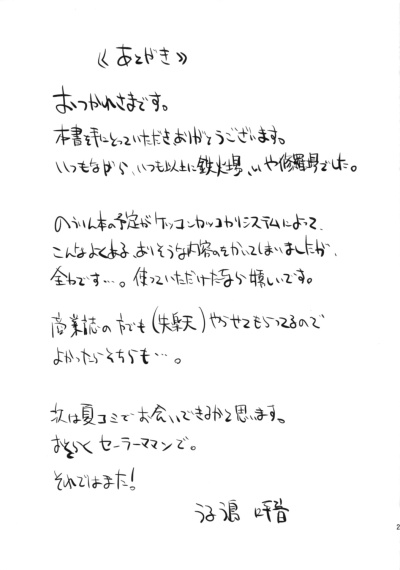 《あとがき》
おつかれさまです。
本書を手にとっていただきありがとうございます。
いつもながら、いつも以上に鉄火場、いや修羅場でした。
のうりん本の予定がケッコンカッコカリシステムによって、
こんなよくある、ありそうな内容のをかいてしまいましたが、
全わです…。使っていただけたなら嬉しいです。
商業誌の方でも(失楽天)やらせてもらってるので
よかったらそちらも…。
次は夏コミでお会いできるかと思います。
おそらくセーラーママンで。
それではまた!
2